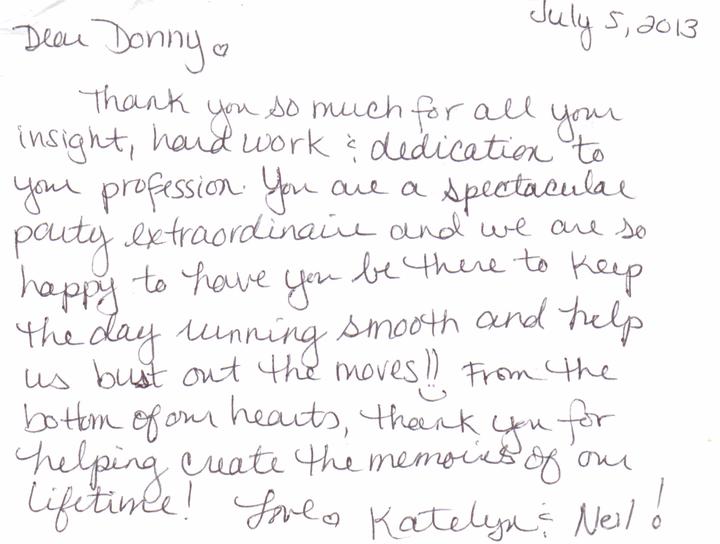 July 5, 2013
Dear Donny♡
Thank you so much for all your
insight, hard work & dedication to
your profession. You are a spectacular
party extraordinaire and we are so
happy to have you be there to keep
the day running smooth and help
us bust out the moves!!
From the
bottom of our hearts, thank you for
helping create the memories of our
lifetime! Love♡ Katelyn & Neil!